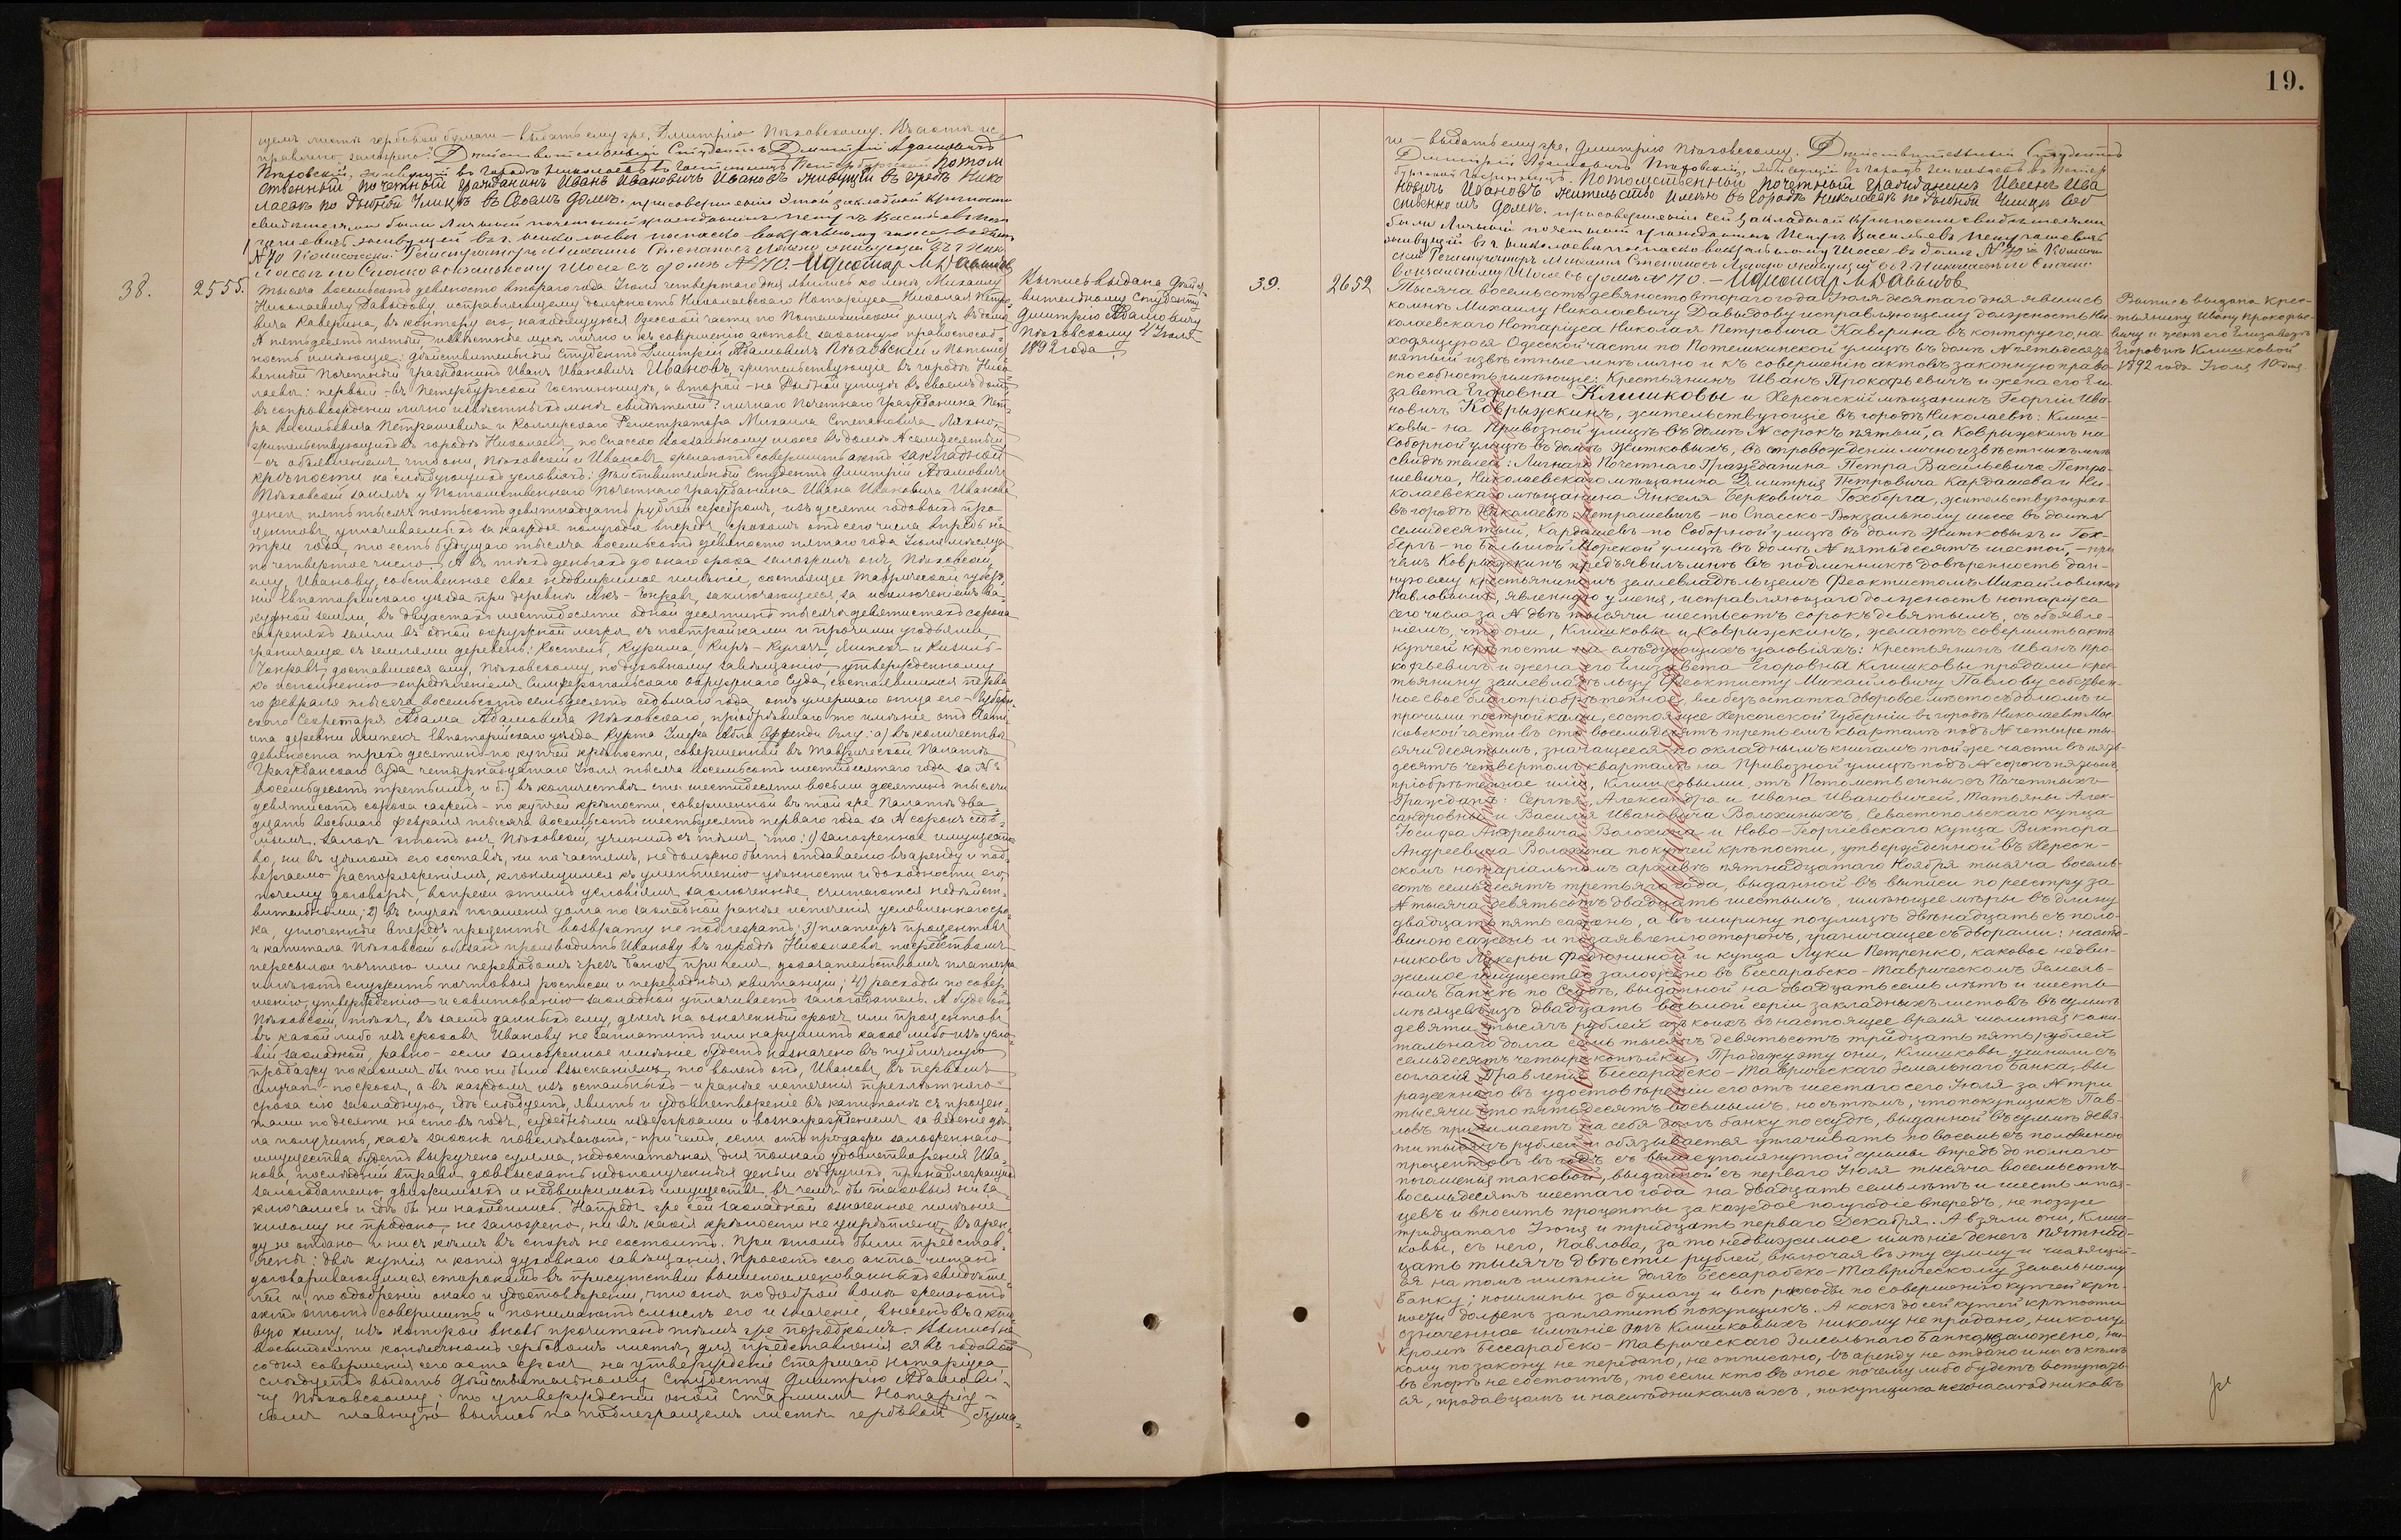 щемъ листѣ гербовой бумаги – выдать ему же, Дмитрію Пѣховскому. Въ актѣ ис-
правлено: заложено". Дѣйствительный Студентъ Дмитрій Адамовичъ
Пѣховскій, живущій въ городѣ Николаевѣ въ Гостинницѣ Петербургской Потом
ственный почетный гражданинъ Иванъ Ивановичъ Ивановъ живущій въ городѣ Нико
лаевѣ по Рыбной улицѣ въ своемъ домѣ. при совершеніи этой закладной крѣпости
свидѣтелями были Личный почетный гражданинъ Петръ Васильевъ Пет
рашевичъ живущій въ г. Николаевѣ по Спаско вокзальному шоссе въ домѣ
№ 70 Коллежскій Регистраторъ Михаилъ Степановъ Ляхно живущій въ г. Ник
лаевѣ по Спаско вокзальному Шоссе въ домѣ № 70. – И д нотар. М Давыдов
38.
2555.
Тысяча восемьсотъ девяносто втораго года Іюля четвертаго дня явились ко мнѣ, Михаилу
Николаевичу Давыдову, исправляющему должность Николаевскаго Нотаріуса Николая Петро-
вича Каверина, въ контору его, находящуюся Одесской части по Потемкинской улицѣ въ домѣ
№ пятьдесятъ пятый, извѣстные мнѣ лично и къ совершенію актовъ законную правоспособ-
ность имѣющіе: дѣйствительный Студентъ Дмитрій Адамовичъ Пѣховскій и Потомст-
венный Почетный Гражданинъ Иванъ Ивановичъ Ивановъ, жительствующіе въ городѣ Нико-
лаевѣ: первый – въ Петербургской Гостинницѣ, а второй – на Рыбной улицѣ въ своемъ домѣ,
въ сопровожденіи лично извѣстныхъ мнѣ свидѣтелей: личнаго Почетнаго Гражданина Пет-
ра Васильевича Петрашевича и Коллежскаго Регистратора Михаила Степановича Ляхно,
жительствующихъ въ городѣ Николаевѣ, по Спасско Вокзальному шоссе въ домѣ № семидесятый
– съ объявленіемъ, что они, Пѣховскій и Ивановъ желаютъ совершить актъ закладной
крѣпости на слѣдующихъ условіяхъ: Дѣйствительный Студентъ Дмитрій Адамовичъ
Пѣховскій занялъ у Потомственнаго Почетнаго Гражданина Ивана Ивановича Иванова
денегъ пять тысячъ пятьсотъ девятнадцать рублей серебромъ, изъ десяти годовыхъ про-
центовъ, уплачиваемыхъ за каждое полугодіе впередъ, срокомъ отъ сего числа впредь на
три года, то есть будущаго тысяча восемьсотъ девяносто пятаго года Іюля мѣсяца
по четвертое число. А въ тѣхъ деньгахъ до онаго срока заложилъ онъ, Пѣховскій,
ему, Иванову, собственное свое недвижимое имѣніе, состоящее Таврической губер-
ніи Евпаторійскаго уѣзда при деревнѣ Акъ-Чонравъ, заключающееся, за исключеніемъ ва-
куфной земли, въ двухстахъ шестидесяти одной десятинѣ тысячѣ девятистахъ сорока
саженяхъ земли въ одной окружной межѣ съ постройками и прочими угодьями,
граничащее съ землями деревень: Костель, Курима, Киръ-Кулачъ, Яшпекъ и Кизилъ-
Чонравъ, доставшееся ему, Пѣховскому, по духовному завѣщанію, утвержденному
къ исполненію опредѣленіемъ Симферопольскаго Окружнаго Суда, состоявшимся перва-
го февраля тысяча восемьсотъ семьдесятъ седьмаго года, отъ умершаго отца его – Губерн-
скаго Секретаря Адама Адамовича Пѣховскаго, пріобрѣвшаго то имѣніе отъ
девяноста трехъ десятинъ по купчей крѣпости, совершенной въ Таврической Палатѣ
Гражданскаго Суда четырнадцатаго Іюля тысяча восемьсотъ шестидесятаго года за №
восемьдесятъ третьимъ, и б.) въ количествѣ ста шестидесяти восьми десятинъ тысячи
девятисотъ сорока саженъ – по купчей крѣпости, совершенной въ той же Палатѣ два-
дцать восьмаго февраля тысяча восемьсотъ шестьдесятъ перваго года за № сорокъ седь-
мымъ. Залогъ этотъ онъ, Пѣховскій, учинилъ съ тѣмъ, что: 1) заложенное имущест-
во, ни въ цѣломъ его составѣ, ни по частямъ, не должно быть отдаваемо въ аренду и под-
вергаемо распоряженіямъ, клонящимся къ уменьшенію цѣнности и доходности его,
почему договоры, вопреки этимъ условіямъ заключенные, считаются недѣйст-
вительными; 2) въ случаѣ погашенія долга по закладной ранѣе истеченія условленнаго сро-
ка, уплоченные впередъ проценты возврату не подлежатъ; 3) платежъ процентовъ
и капитала Пѣховскій обязанъ производить Иванову въ городѣ Николаевѣ посредствомъ
пересылки почтою или переводомъ чрезъ банкъ, при чемъ доказательствомъ платежа
имѣютъ служить почтовыя росписки и переводныя квитанціи; 4) расходы по совер-
шенію, утвержденію и совитованію закладной уплачиваетъ залогодатель. А буде онъ,
Пѣховскій, тѣхъ, въ заемъ данныхъ ему, денегъ на означенный срокъ или процентовъ
въ какой либо изъ сроковъ Иванову не заплатитъ или нарушитъ какое либо изъ усло-
вій закладной, равно – если заложенное имѣніе будетъ назначено въ публичную
продажу по какимъ бы то ни было взысканіямъ, то воленъ онъ, Ивановъ, въ первомъ
случаѣ – по срокѣ, а въ каждомъ изъ остальныхъ – и ранѣе истеченія трехлѣтняго
срока сію закладную, гдѣ слѣдуетъ, явить и удовлетвореніе въ капиталѣ съ процен-
тами по десяти на сто въ годъ, судебными издержками и вознагражденіемъ за веденіе дѣ-
ла получить, какъ законы повелѣваютъ, – при чемъ, если отъ продажи заложеннаго
имущества будетъ выручена сумма, недостаточная для полнаго удовлетворенія Ива-
нова, послѣдній вправѣ довзыскать недополученныя деньги съ другихъ, принадлежащихъ
залогодателю, движимыхъ и недвижимыхъ имуществъ, въ чемъ бы таковыя ни за-
ключались и гдѣ бы ни находились. Напредь же сей закладной означенное имѣніе
никому не продано, не заложено, ни въ какія крѣпости не укрѣплено, въ арен-
ду не отдано и ни съ кѣмъ въ спорѣ не состоитъ. При этомъ были представ-
лены: двѣ купчія и копія духовнаго завѣщанія. Проектъ сего акта читанъ
договаривающимся сторонамъ въ присутствіи вышепоименованныхъ свидѣте-
лей и, по одобреніи онаго и удостовѣреніи, что они по доброй волѣ желаютъ
актъ этотъ совершить и понимаютъ смыслъ его и значеніе, внесенъ въ акто-
вую книгу, изъ которой вновь прочитанъ тѣмъ же порядкомъ. Выпись на
восьмидесяти копѣечномъ гербовомъ листѣ, для представленія ея въ годовой
со дня совершенія сего акта срокъ на утвержденіе Старшаго Нотаріуса
слѣдуетъ выдать Дѣйствительному Студенту Дмитрію Адамови-
чу Пѣховскому; по утвержденіи оной Старшимъ Нотаріу-
сомъ главную выпись на подлежащемъ листѣ гербовой бума-
Выпись выдана Дѣйст-
вительному Студенту
Дмитрію Адамовичу
Пѣховскому 4 Іюля
1892 года.
19.
ги – выдать ему же, Дмитрію Пѣховскому. Дѣйствительный Студентъ
Дмитрій Адамовичъ Пѣховскій, живущій въ городѣ Николаевѣ въ Петер
бургской Гостинницѣ. Потомственный почетный гражданинъ Иванъ Ива
новичъ Ивановъ жительство имѣю въ городѣ Николаевѣ по Рыбной улицѣ въ соб
ственномъ домѣ. при совершеніи сей закладной крѣпости свидѣтелями
были Личный почетный гражданинъ Петръ Васильевъ Петрашевичъ
живущій въ г. Николаевѣ по Спаско вокзальному Шоссе въ домѣ № 70 и Коллеж
скій Регистраторъ Михаилъ Степановъ Ляхно живущій въ г. Николаевѣ по Спаско
вокзальному Шоссе въ домѣ № 70. – И д нотар. М Давыдов
39.
2652
Тысяча восемьсотъ девяносто втораго года Іюля десятаго дня явились
ко мнѣ Михаилу Николаевичу Давыдову исправляющему должность Ни-
колаевскаго Нотаріуса Николая Петровича Каверина въ контору его, на-
ходящуюся Одесской части по Потемкинской улицѣ въ домѣ № пятьдесятъ
пятый извѣстные мнѣ лично и къ совершенію актовъ законную право-
способность имѣющіе: Крестьянинъ Иванъ Прокофьевичъ и жена его Ели-
завета Егоровна Клишковы и Херсонскій мѣщанинъ Георгій Ива-
новичъ Коврыжкинъ, жительствующіе въ городѣ Николаевѣ: Клиш-
ковы – на Привозной улицѣ въ домѣ № сорокъ пятый, а Коврыжкинъ на
Соборной улицѣ въ домѣ Житковыхъ, въ сопровожденіи лично извѣстныхъ мнѣ
свидѣтелей: Личнаго Почетнаго Гражданина Петра Васильевича Петра-
шевича, Николаевскаго мѣщанина Дмитрія Петровича Кардашева и Ни-
колаевскаго мѣщанина Янкеля Берковича Гохберга, жительствующихъ
въ городѣ Николаевѣ: Петрашевичъ – по Спасско-Вокзальному шоссе въ домѣ №
семидесятый, Кардашевъ – по Соборной улицѣ въ домѣ Житковыхъ и Гох-
бергъ – по Большой Морской улицѣ въ домѣ № пятьдесятъ шестой, – при
чемъ Коврыжкинъ предъявилъ мнѣ въ подлинникѣ довѣренность дан-
ную ему крестьяниномъ землевладѣльцемъ Феоктистомъ Михайловичемъ
Павловымъ, явленную у меня, исправляющаго должность нотаріуса
сего числа за № двѣ тысячи шестьсотъ сорокъ девятымъ, съ объявле-
ніемъ, что они, Клишковы и Коврыжкинъ, желаютъ совершить актъ
купчей крѣпости на слѣдующихъ условіяхъ: Крестьянинъ Иванъ Про-
кофьевичъ и жена его Елизавета Егоровна Клишковы продали кре-
стьянину землевладѣльцу Феоктисту Михайловичу Павлову собствен-
ное свое благопріобрѣтенное, все безъ остатка дворовое мѣсто съ домомъ и
прочими постройками, состоящее Херсонской Губерніи въ городѣ Николаевѣ Мос-
ковской части въ сто восемьдесятъ третьемъ кварталѣ подъ № четыре ты-
сячи десятымъ, значащееся по окладнымъ книгамъ той же части въ пять-
десятъ четвертомъ кварталѣ на Привозной улицѣ подъ № сорокъ пятымъ,
пріобрѣтенное ими, Клишковыми, отъ Потомственныхъ Почетныхъ
Гражданъ: Сергѣя, Александра и Ивана Ивановичей, Татьяны Алек-
сандровны и Василія Ивановича Волохиныхъ, Севастопольскаго купца
Іосифа Андреевича Волохина и Ново-Георгіевскаго купца Виктора
Андреевича Волохина по купчей крѣпости, утвержденной въ Херсон-
скомъ нотаріальномъ архивѣ пятнадцатаго Ноября тысяча восемь-
сотъ семьдесятъ третьяго года, выданной въ выписи по реестру за
№ тысяча девятьсотъ двадцать шестымъ, имѣющее мѣры въ длину
двадцать пять сажень, а въ ширину по улицѣ двѣнадцать съ поло-
виною сажень и по заявленію сторонъ, граничащее съ дворами: наслѣд-
никовъ Лукерьи Федюниной и купца Луки Петренко, каковое недви-
жимое имущество заложено въ Бессарабско-Таврическомъ Земель-
номъ Банкѣ по ссудѣ, выданной на двадцать семь лѣтъ и шесть
мѣсяцевъ изъ двадцать восьмой серіи закладныхъ листовъ въ суммѣ
девяти тысячъ рублей изъ коихъ въ настоящее время числится капи-
тальнаго долга семь тысячъ девятьсотъ тридцать пять рублей
семьдесятъ четыре копѣйки. Продажу эту они, Клишковы, учинили съ
согласія Правленія Бессарабско-Таврическаго Земельнаго Банка, вы-
раженнаго въ удостовѣреніи его отъ шестаго сего Іюля за № три
тысячи сто пятьдесятъ восьмымъ, но съ тѣмъ, что покупщикъ Пав-
ловъ принимаетъ на себя долгъ банку по ссудѣ, выданной въ суммѣ девя-
ти тысячъ рублей и обязывается уплачивать по восемь съ половиною
процентовъ въ годъ съ вышеупомянутой суммы впредь до полнаго
погашенія таковой, выданной съ перваго Іюля тысяча восемьсотъ
восемьдесятъ шестаго года на двадцать семь лѣтъ и шесть мѣся-
цевъ и вносить проценты за каждое полугодіе впередъ, не позже
тридцатаго Іюня и тридцать перваго Декабря. А взяли они, Клиш-
ковы, съ него, Павлова, за то недвижимое имѣніе денегъ пятнад-
цать тысячъ двѣсти рублей, включая въ эту сумму и числящій-
ся на томъ имѣніи долгъ Бессарабско-Таврическому Земельному
Банку; пошлины за бумагу и всѣ расходы по совершенію купчей крѣ-
пости долженъ заплатить покупщикъ. А какъ до сей купчей крѣпости
означенное имѣніе отъ Клишковыхъ никому не продано, никому
кромѣ Бессарабско-Таврическаго Земельнаго Банка, не заложено, ни-
кому по закону не передано, не отписано, въ аренду не отдано и ни съ кѣмъ
въ спорѣ не состоитъ, то если кто въ оное почему либо будетъ вступать-
ся, продавцамъ и наслѣдникамъ ихъ, покупщика и его наслѣдниковъ
Выпись выдана Крес-
тьянину Ивану Прокофье-
вичу и женѣ его Елизаветѣ
Егоровнѣ Клишковой
1892 года Іюля 10 дня.